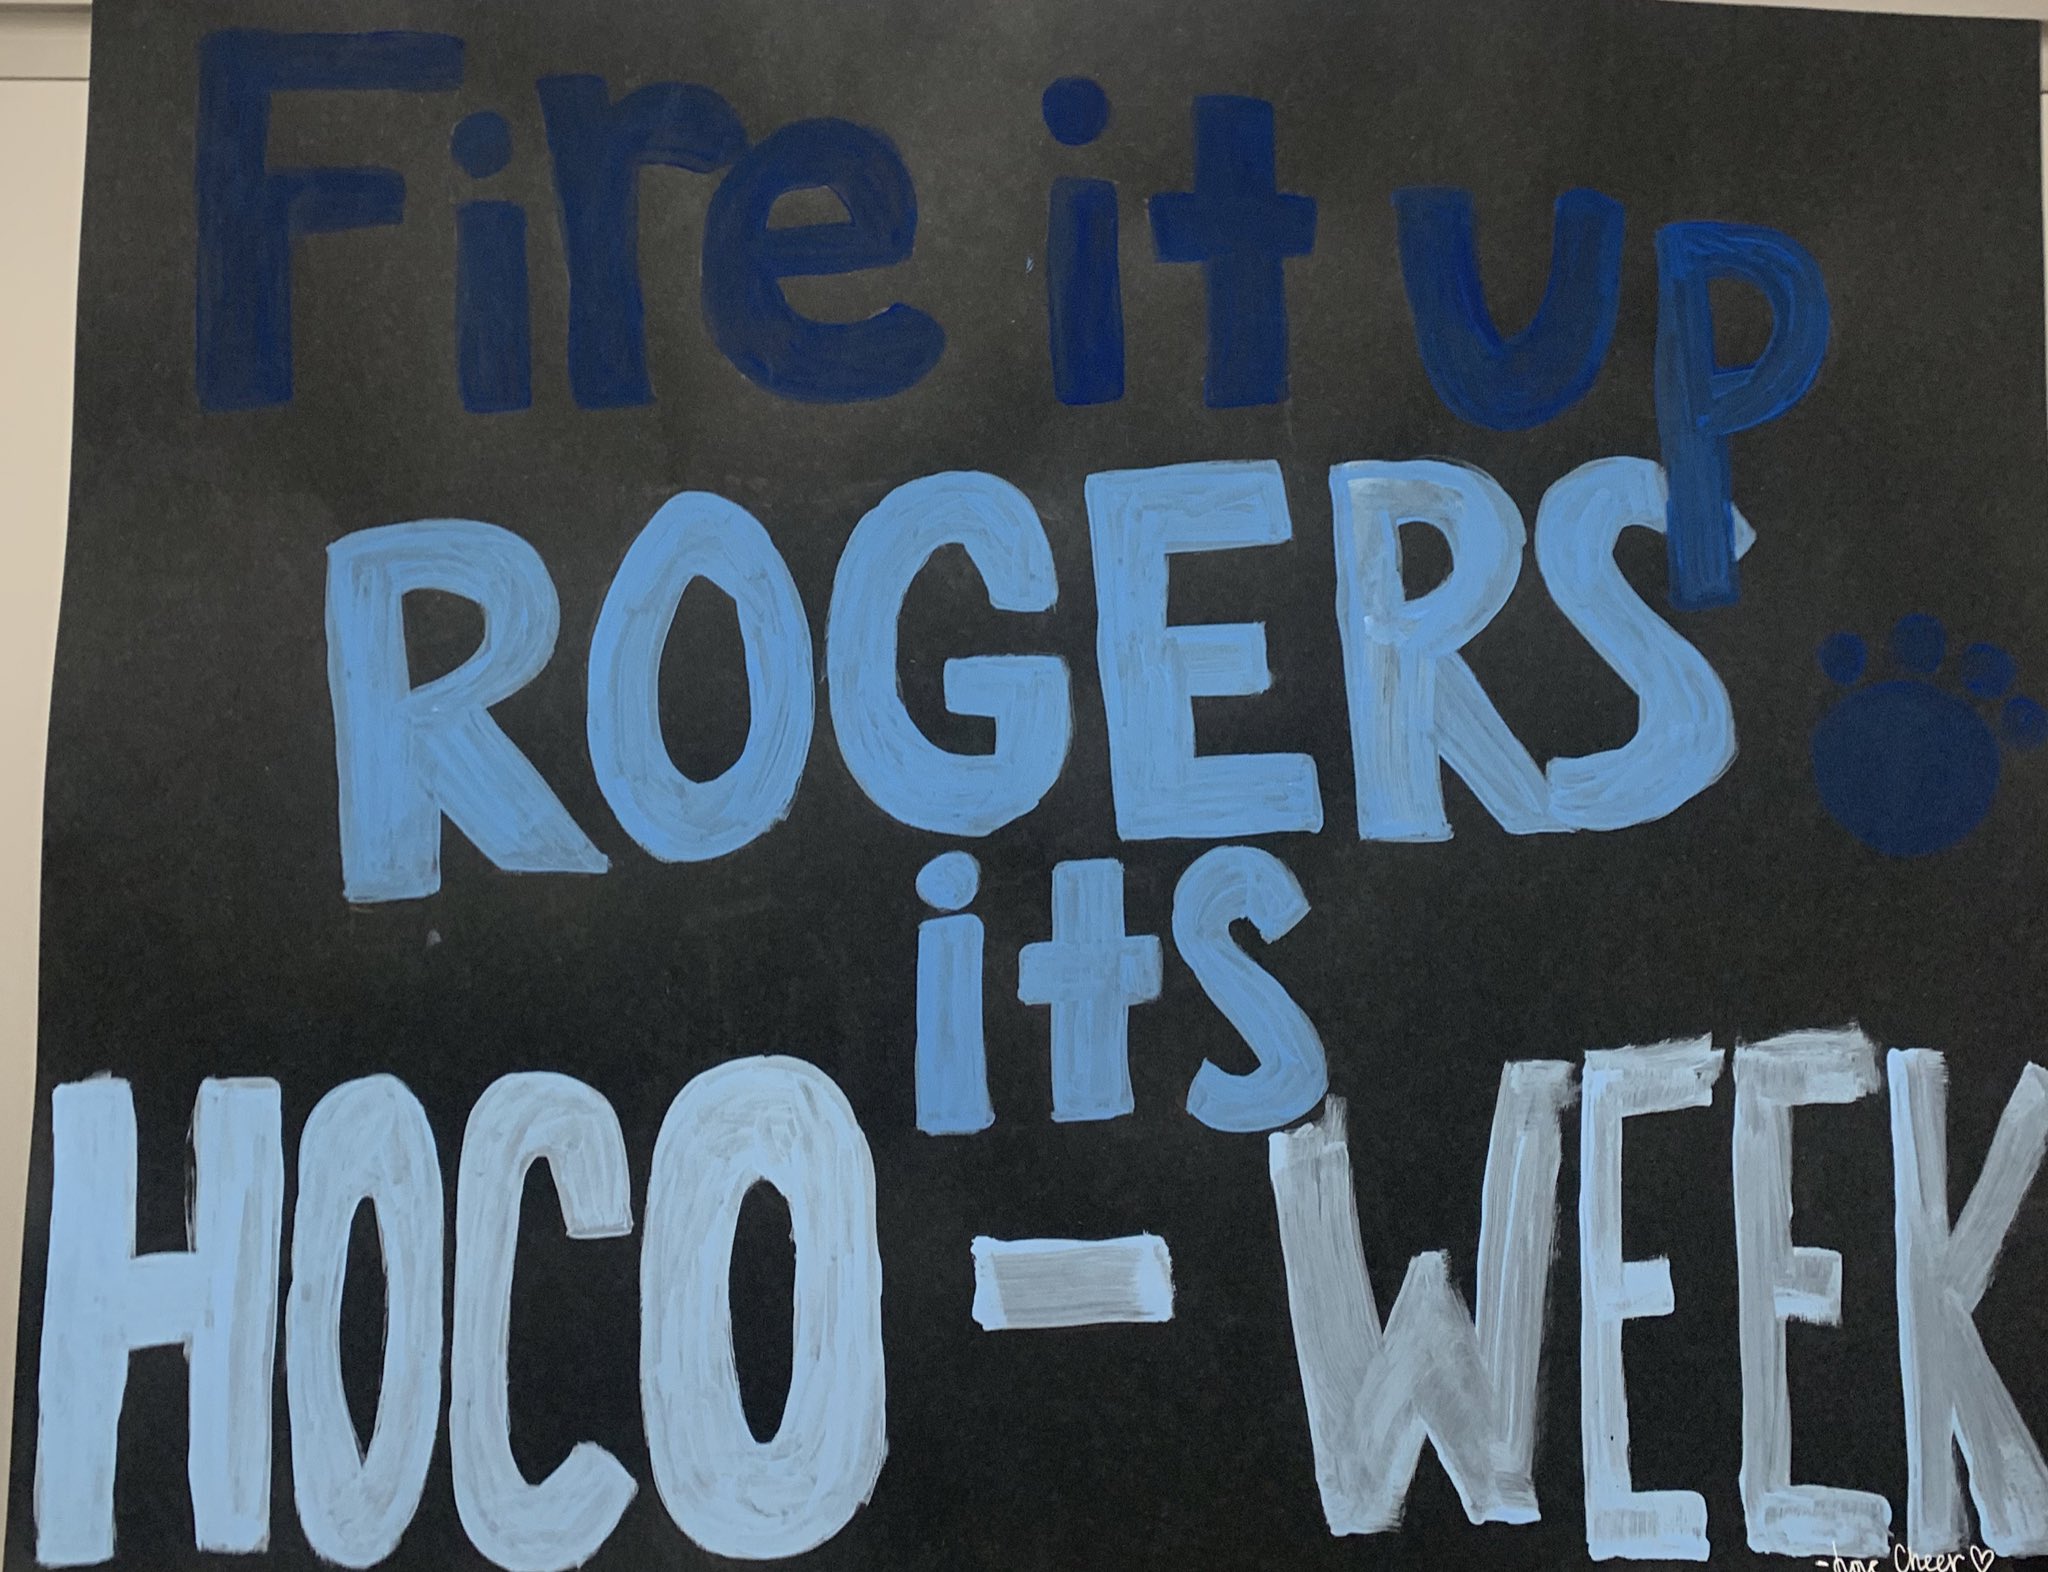 Fire it up
ROGERS
its
HOCO - WEEK
- Love Cheer ♡